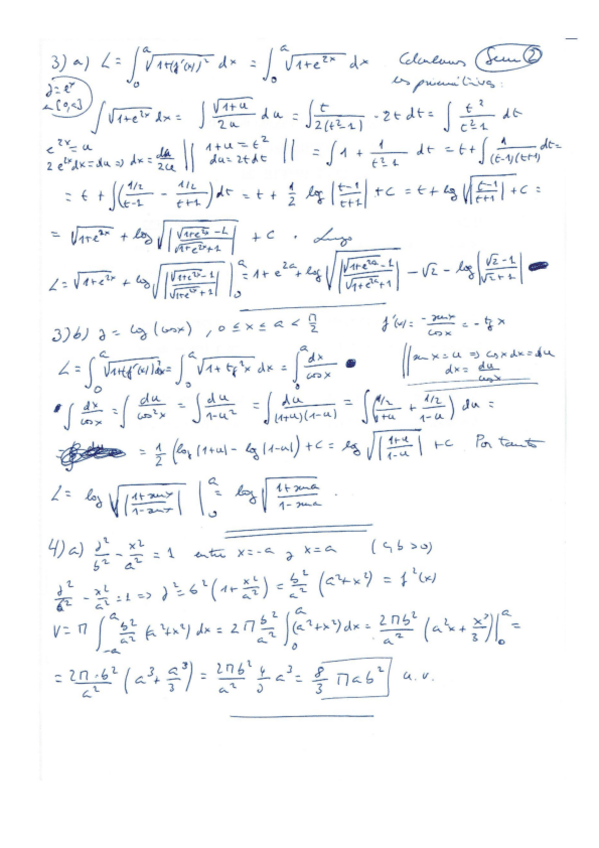 3) a) L = ∫₀ᵃ √(1+(f'(x))²) dx = ∫₀ᵃ √(1+e^(2x)) dx Calculamos Sem ②
y = eˣ las primitivas:
en [0,a] ∫ √(1+e^(2x)) dx = ∫ √(1+u)/(2u) du = ∫ t/(2(t²-1)) · 2t dt = ∫ t²/(t²-1) dt
e^(2x) = u
2e^(2x)dx = du ⇒ dx = du/(2u) || 1+u = t² du = 2t dt || = ∫ 1 + 1/(t²-1) dt = t + ∫ 1/((t-1)(t+1)) dt =
= t + ∫ ((1/2)/(t-1) - (1/2)/(t+1)) dt = t + 1/2 log |(t-1)/(t+1)| + C = t + log √|(t-1)/(t+1)| + C =
= √(1+e^(2x)) + log √|(√(1+e^(2x))-1)/(√(1+e^(2x))+1)| + C . Luego
L = √(1+e^(2x)) + log √|(√(1+e^(2x))-1)/(√(1+e^(2x))+1)| |₀ᵃ = 1+e^(2a) + log √|(√(1+e^(2a))-1)/(√(1+e^(2a))+1)| - √2 - log |(√2-1)/(√2+1)|
3) b) y = log(cosx) , 0 ≤ x ≤ a < π/2 f'(x) = -senx/cosx = -tg x
L = ∫₀ᵃ √(1+(f'(x))²) dx = ∫₀ᵃ √(1+tg²x) dx = ∫₀ᵃ dx/cosx || sen x = u ⇒ cosx dx = du
dx = du/cosx
∫ dx/cosx = ∫ du/cos²x = ∫ du/(1-u²) = ∫ du/((1+u)(1-u)) = ∫ ((1/2)/(1+u) + (1/2)/(1-u)) du =
= 1/2 (log |1+u| - log |1-u|) + C = log √|(1+u)/(1-u)| + C Por tanto
L = log √|(1+senx)/(1-senx)| |₀ᵃ = log √((1+sena)/(1-sena)) .
4) a) y²/b² - x²/a² = 1 entre x=-a y x=a (a,b >0)
y²/b² - x²/a² = 1 ⇒ y² = b² (1+x²/a²) = b²/a² (a²+x²) = f²(x)
V = π ∫₋ₐᵃ b²/a² (a²+x²) dx = 2π b²/a² ∫₀ᵃ (a²+x²) dx = 2πb²/a² (a²x + x³/3) |₀ᵃ =
= 2π·b²/a² (a³ + a³/3) = 2πb²/a² 4/3 a³ = 8/3 πab² u.v.